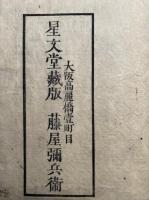 大阪高麗橋壹町目
星文堂藏版 藤屋彌兵衞